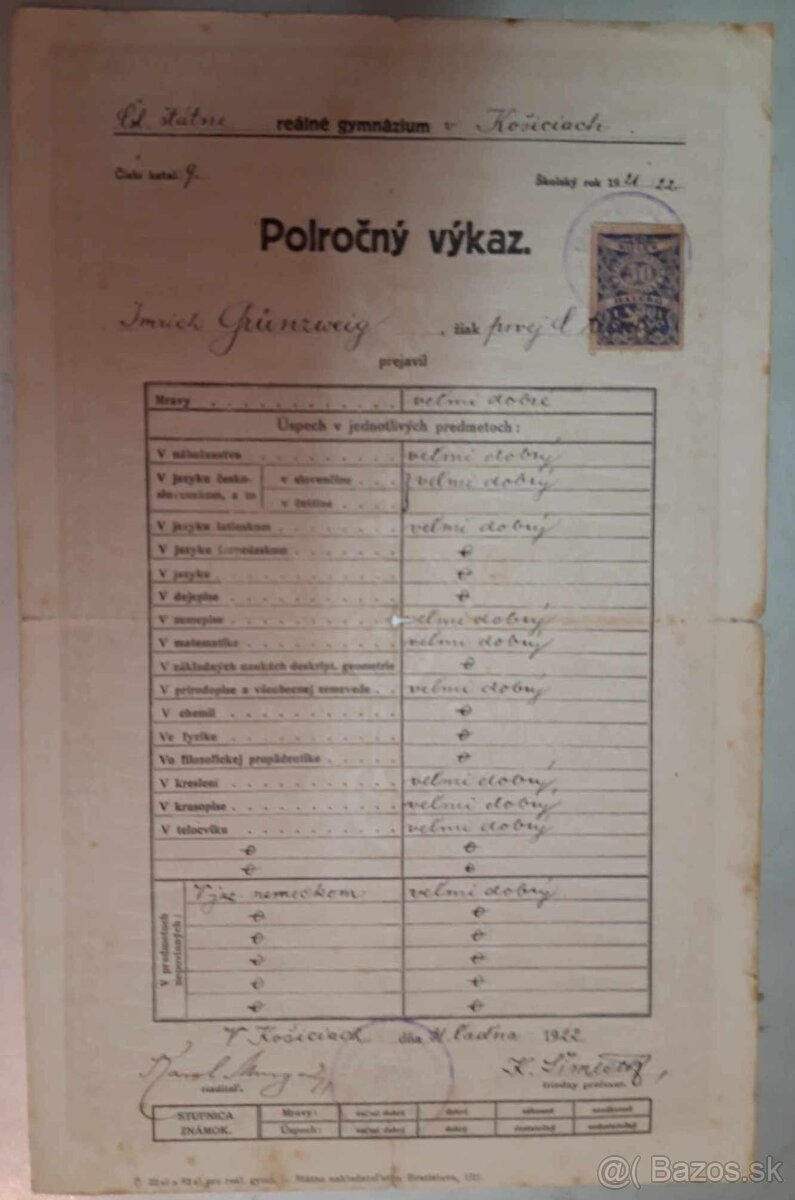 Čsl. štátne reálne gymnázium v Košiciach.
Číslo katal. 9. Školský rok 1921-22
Polročný výkaz.
Imrich Grünzweig, žiak prvej
prejavil
Mravy veľmi dobré
Úspech v jednotlivých predmetoch:
V náboženstve veľmi dobrý
V jazyku česko-slovenskom, a to v slovenčine veľmi dobrý
v češtine
V jazyku latinskom veľmi dobrý
V jazyku
V jazyku
V dejepise
V zemepise veľmi dobrý
V matematike veľmi dobrý
V základných naukách deskript. geometrie
V prírodopise a všeobecnej zemevede veľmi dobrý
V chemii
Ve fyzike
Vo filosofickej propädeutike
V kreslení veľmi dobrý
V krasopise veľmi dobrý
V telocviku veľmi dobrý
V predmetoch nepovinných:
V jaz. nemeckom veľmi dobrý
V Košiciach dňa ladna 1922
Karol
riaditeľ. triedny profesor.
STUPNICA ZNÁMOK.
Mravy: veľmi dobré dobré zákonné nezákonné
Úspech: veľmi dobrý dobrý dostatočný nedostatočný
Štátne nakladateľstvo Bratislava,
@( Bazos.sk